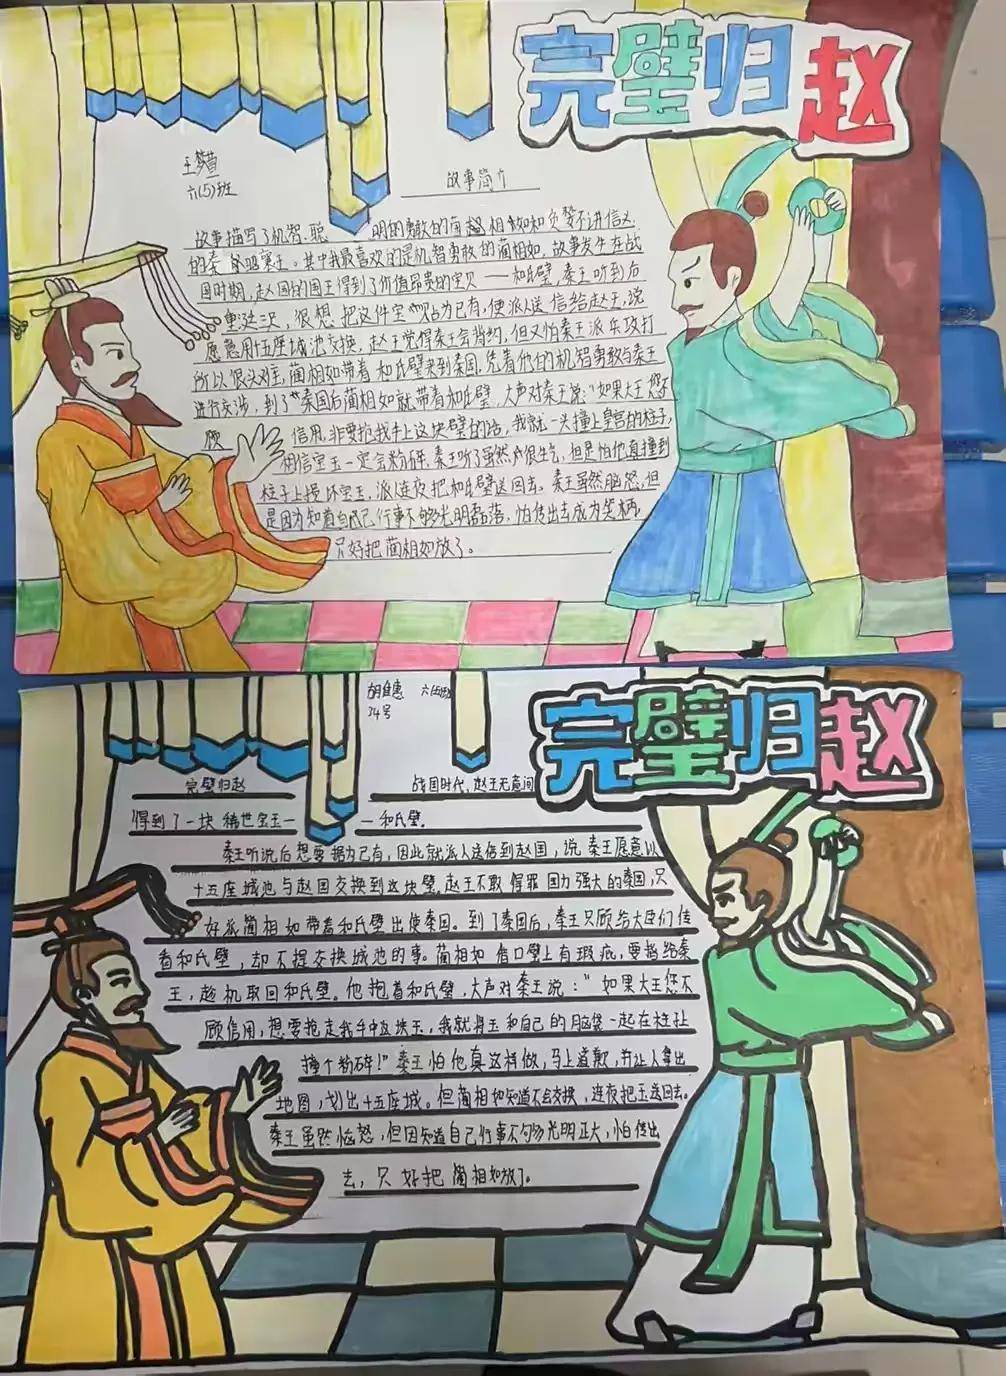 完璧归赵
王梦萱
六(5)班
故事简介
故事描写了机智、聪明的勇敢的蔺相如和负赞不讲信义
的秦昭襄王。其中我最喜欢的是机智勇敢的蔺相如，故事发生在战
国时期，赵国的国王得到了价值昂贵的宝贝——和氏璧，秦王听到后
很想把这件宝占为己有，便派人送信给赵王，说
愿意用十五座城池交换，赵王觉得秦王会背约，但又怕秦王派兵攻打
所以蔺相如带着和氏璧来到秦国，凭着他的机智勇敢与秦王
进行交涉，到了秦国后蔺相如就带着和氏璧，大声对秦王说："如果大王您不
顾信用，非要抢我手上这块璧的话，我就一头撞上皇宫的柱子，
相信宝玉一定会粉碎，秦王听了虽然很生气，但是怕他真撞到
柱子上损坏宝玉，派人连夜把和氏璧送回去。秦王虽然恼怒，但
是因为知道自己行事不够光明磊落，怕传出去成为笑柄，
只好把蔺相如放了。
完璧归赵
六(5)班
34号
完璧归赵 战国时代，赵王无意间
得到了一块稀世宝玉——和氏璧。
秦王听说后想要据为己有，因此就派人送信到赵国，说秦王愿意以
十五座城池与赵国交换到这块璧。赵王不敢得罪国力强大的秦国，只
好派蔺相如带着和氏璧出使秦国。到了秦国后，秦王只顾给大臣们传
看和氏璧，却不提交换城池的事。蔺相如借口璧上有瑕疵，要指给秦
王，趁机取回和氏璧。他抱着和氏璧，大声对秦王说："如果大王您不
顾信用，想要抢走我手中这块玉，我就将玉和自己的脑袋一起在柱子上
撞个粉碎！"秦王怕他真这样做，马上道歉，并让人拿出
地图，划出十五座城。但蔺相如知道不会交换，连夜把玉送回去。
秦王虽然恼怒，但因知道自己行事不够光明正大，怕传出
去，只好把蔺相如放了。